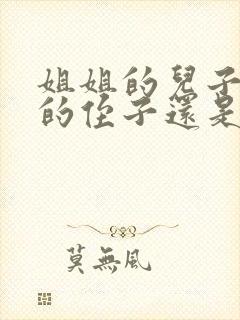 姐姐的兒子
的侄子還是
莫無風